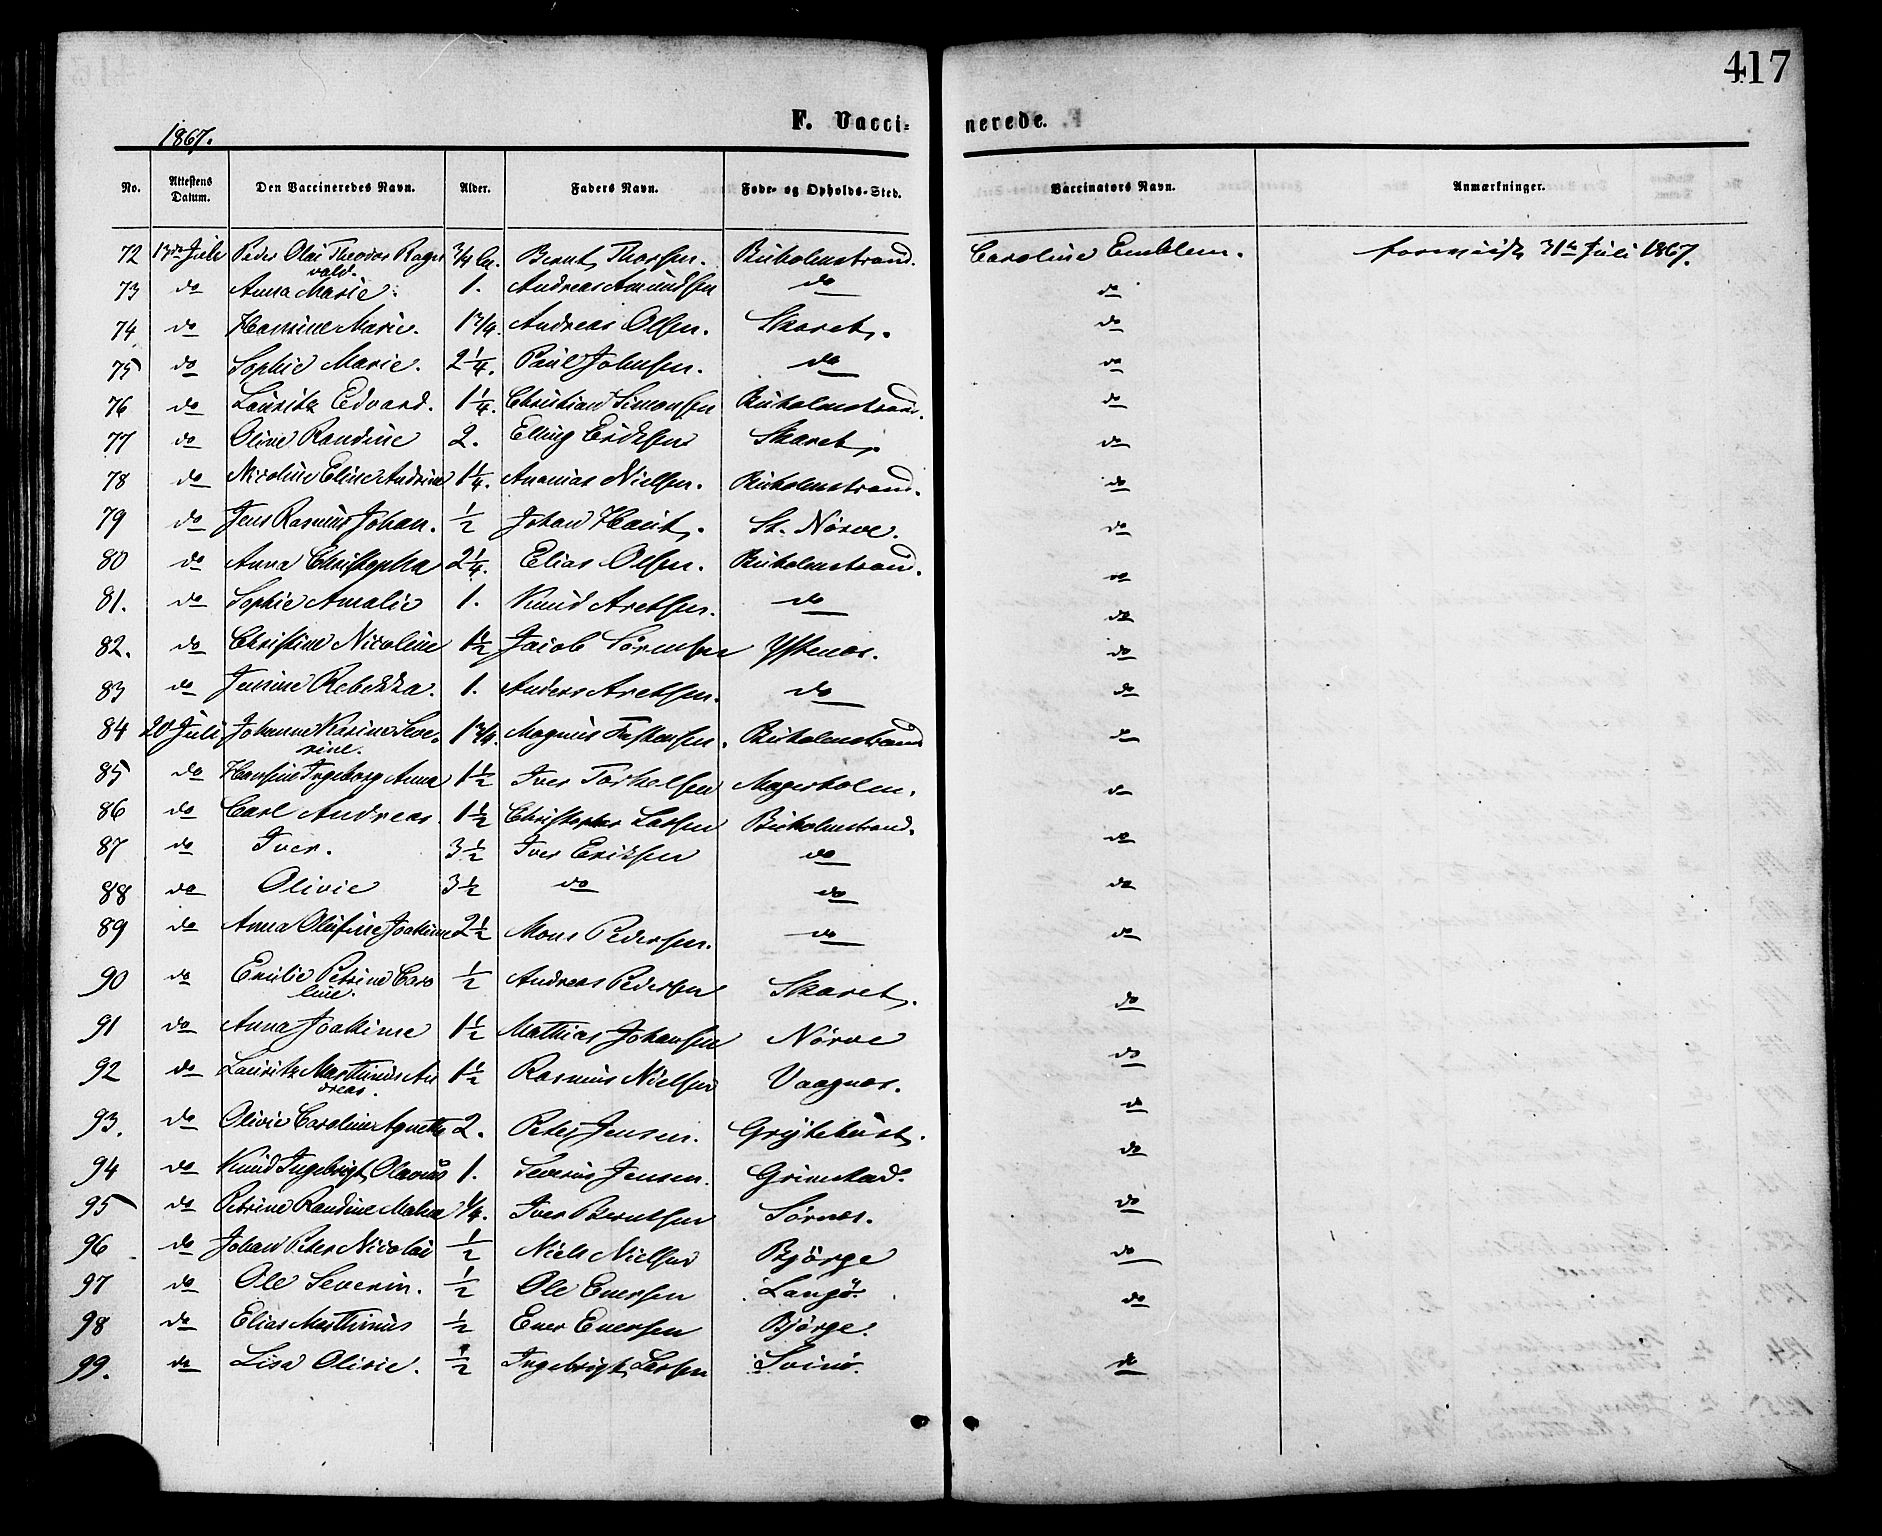 417
F. Vacci- nerede.
1867.
No. Attestens Datum. Den Vaccineredes Navn. Alder. Faders Navn. Føde- og Opholds-Sted. Vaccinators Navn. Anmærkninger.
72 13de Juli Peder Olai Theodor Rag 3/4 Bernt Thorsen. Buholmstrand. Caroline Emblem. 31te Juli 1867.
vald.
73 do Anna Marie. 1. Andreas Amundsen do do
74 do Hansine Marie. 1 3/4 Andreas Olsen. Skaret. do
75 do Sophie Marie. 2 1/4. Paul Johnsen. do do
76 do Lauritz Edvard. 1 1/4. Christian Simonsen Buholmstrand. do
77 do Oline Randine 2. Elling Eriksen Skaret. do
78 do Nicoline Eline Andrine 1 1/4. Ananias Nielsen. Buholmstrand. do
79 do Jens Rasmus Johan. 1/2 Johan St. Nørve. do
80 do Anna Christopha 2 1/4. Elias Olsen. Buholmstrand. do
81. do Sophie Amalie 1. Knud Aretsen. do do
82. do Christine Nicoline 1 1/2 Jacob Sørensen Ystenæs. do
83 do Jensine Rebekka. 1. Anders Aretsen. do do
84 20 Juli Johanne Karine Seve- 1 3/4. Magnus Buholmstrand do
rine.
85 do Hansine Ingeborg Anna 1 1/2 Iver Torkelsen Magerholm. do
86 do Carl Andreas. 1 1/2 Christopher Larsen Buholmstrand. do
87 do Iver. 3 1/2 Iver Eriksen do do
88 do Olivie 3 1/2 do do do
89 do Anna Olufine Joakime 2 1/2 Mons Pedersen. do do
90 do Emilie Petrine Caro 1/2 Andreas Pedersen Skaret. do
line.
91 do Anna Joakime 1 1/2 Mathias Johansen Nørve do
92 do Lauritz Marthinus An 1 1/2 Rasmus Nielsen Vaagnæs. do
dreas.
93. do Olivie Caroline Agnette 2. Peter Jensen. Gryteküst. do
94 do Knud Ingebrigt Olavus 1. Severin Jensen. Grimstad. do
95 do Petrine Randine Malene 1/4. Iver Berntsen Sørnæs. do
96 do Johan Peter Nicolai 1/2 Niels Nielsen Bjørge do
97 do Ole Severin. 1/2 Ole Eversen Langø. do
98 do Elias Marthinus 1/2 Ever Eversen Bjørge.
99. do Lisa Olivie. 1/2 Ingebrigt Larsen Svinø. do